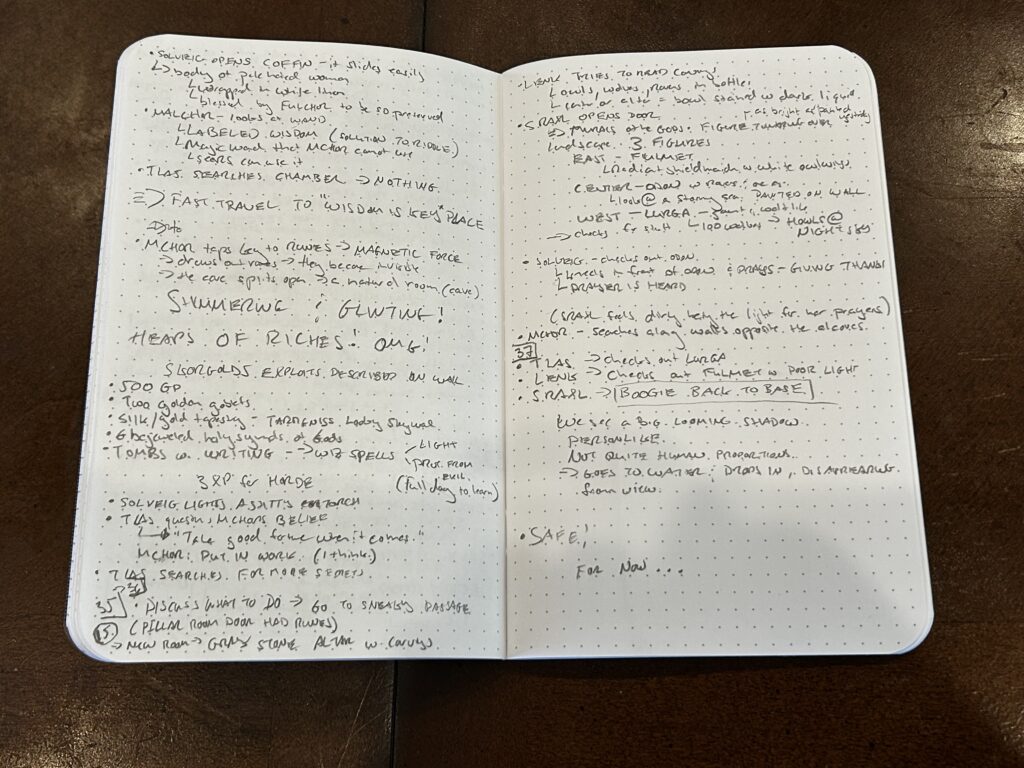 • SOLVEIG OPENS COFFIN - it slides easily
↳ body of pale haired woman
↳ wrapped in white linen
↳ blessed by FULCHOR to be so preserved
• MALCHOR - looks at WAND
↳ LABELED WISDOM (SOLUTION TO RIDDLE)
↳ Magic wand that MCHOR cannot use
↳ seers can use it
• TLAS SEARCHES CHAMBER → NOTHING
⇒ FAST TRAVEL TO "WISDOM IS KEY" PLACE
• MCHOR taps key to RUNES → MAGNETIC FORCE
→ draws out → they become
→ the cave splits open → a natural room (cave)
SHIMMERING & GLINTING!
HEAPS OF RICHES! OMG!
EXPLOITS DESCRIBED ON WALL
• 500 GP
• Two golden goblets
• Silk/gold tapestry -
• 6 bejeweled holy symbols of Gods
• TOMBS w. WRITING → WIZ SPELLS
LIGHT
PROT. FROM EVIL
(full day to learn)
3 XP for HORDE
• SOLVEIG LIGHTS A TORCH
• TLAS questions MCHORS BELIEF
↳ "Take good fortune when it comes."
MCHOR: PUT IN WORK (I think)
• TLAS SEARCHES FOR MORE SECRETS
36
35 • DISCUSS WHAT TO DO → GO TO SNEAKY PASSAGE
(PILLAR ROOM DOOR HAD RUNES)
→ NEW ROOM → GRAY STONE ALTAR w. carvings
• TRIES TO READ carvings
↳ owls, wolves, ravens in battle
↳ center of altar = bowl stained w dark liquid
• SRAXL OPENS DOOR
as bright as painted yesterday
⇒ MURALS of the GODS. FIGURE OVER
landscape. 3 FIGURES
EAST - FULMET
↳ Radiant shieldmaiden w white owl wings
CENTER - ODIN w
↳ looks @ a stormy sea PAINTED ON WALL
WEST - LURGA - gaunt, wolf like
→ checks for stuff ↳ → HOWLS @ NIGHT SKY
• SOLVEIG - checks out ODIN
↳ kneels in front of ODIN & PRAYS - GIVING THANKS
↳ PRAYER IS HEARD
(SRAXL feels dirty being the light for her prayers)
• MCHOR - searches along walls opposite the alcoves
37
• TLAS → checks out LURGA
• → Checks out FULMET w POOR LIGHT
• SRAXL → BOOGIE BACK TO BASE
WE see A BIG LOOMING SHADOW
PERSONLIKE
NOT QUITE HUMAN PROPORTIONS
→ GOES TO WATER & DROPS IN, DISAPPEARING
from view
• SAFE!
FOR NOW...